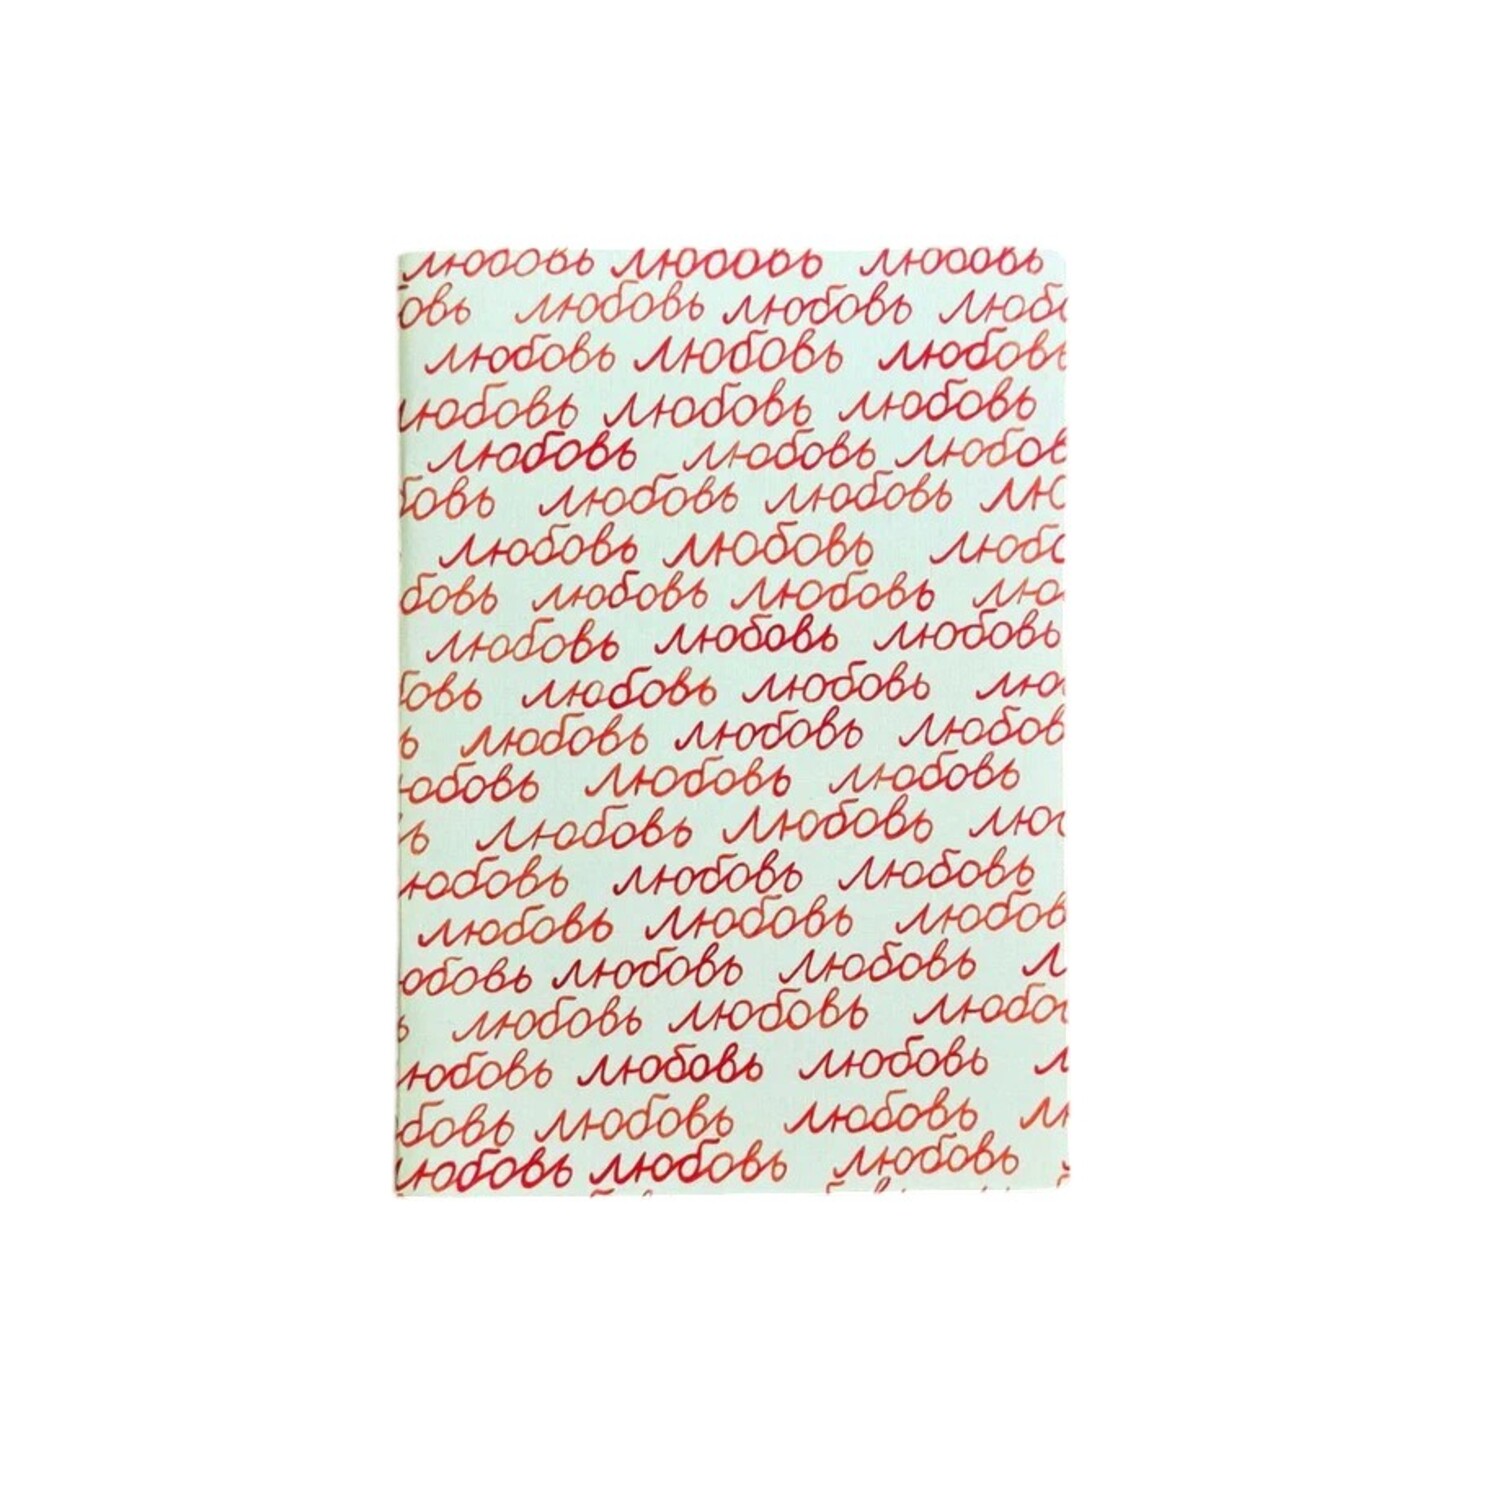 любовь любовь любовь
овь любовь любовь любо
любовь любовь любовь
любовь любовь любовь
любовь любовь любов
бовь любовь любовь лю
любовь любовь любо
бовь любовь любовь лю
любовь любовь любовь
бовь любовь любовь лю
ь любовь любовь любов
юбовь любовь любовь
ь любовь любовь лю
любовь любовь любовь
любовь любовь любов
юбовь любовь любовь л
ь любовь любовь любо
любовь любовь любовь л
бовь любовь любовь л
любовь любовь любовь